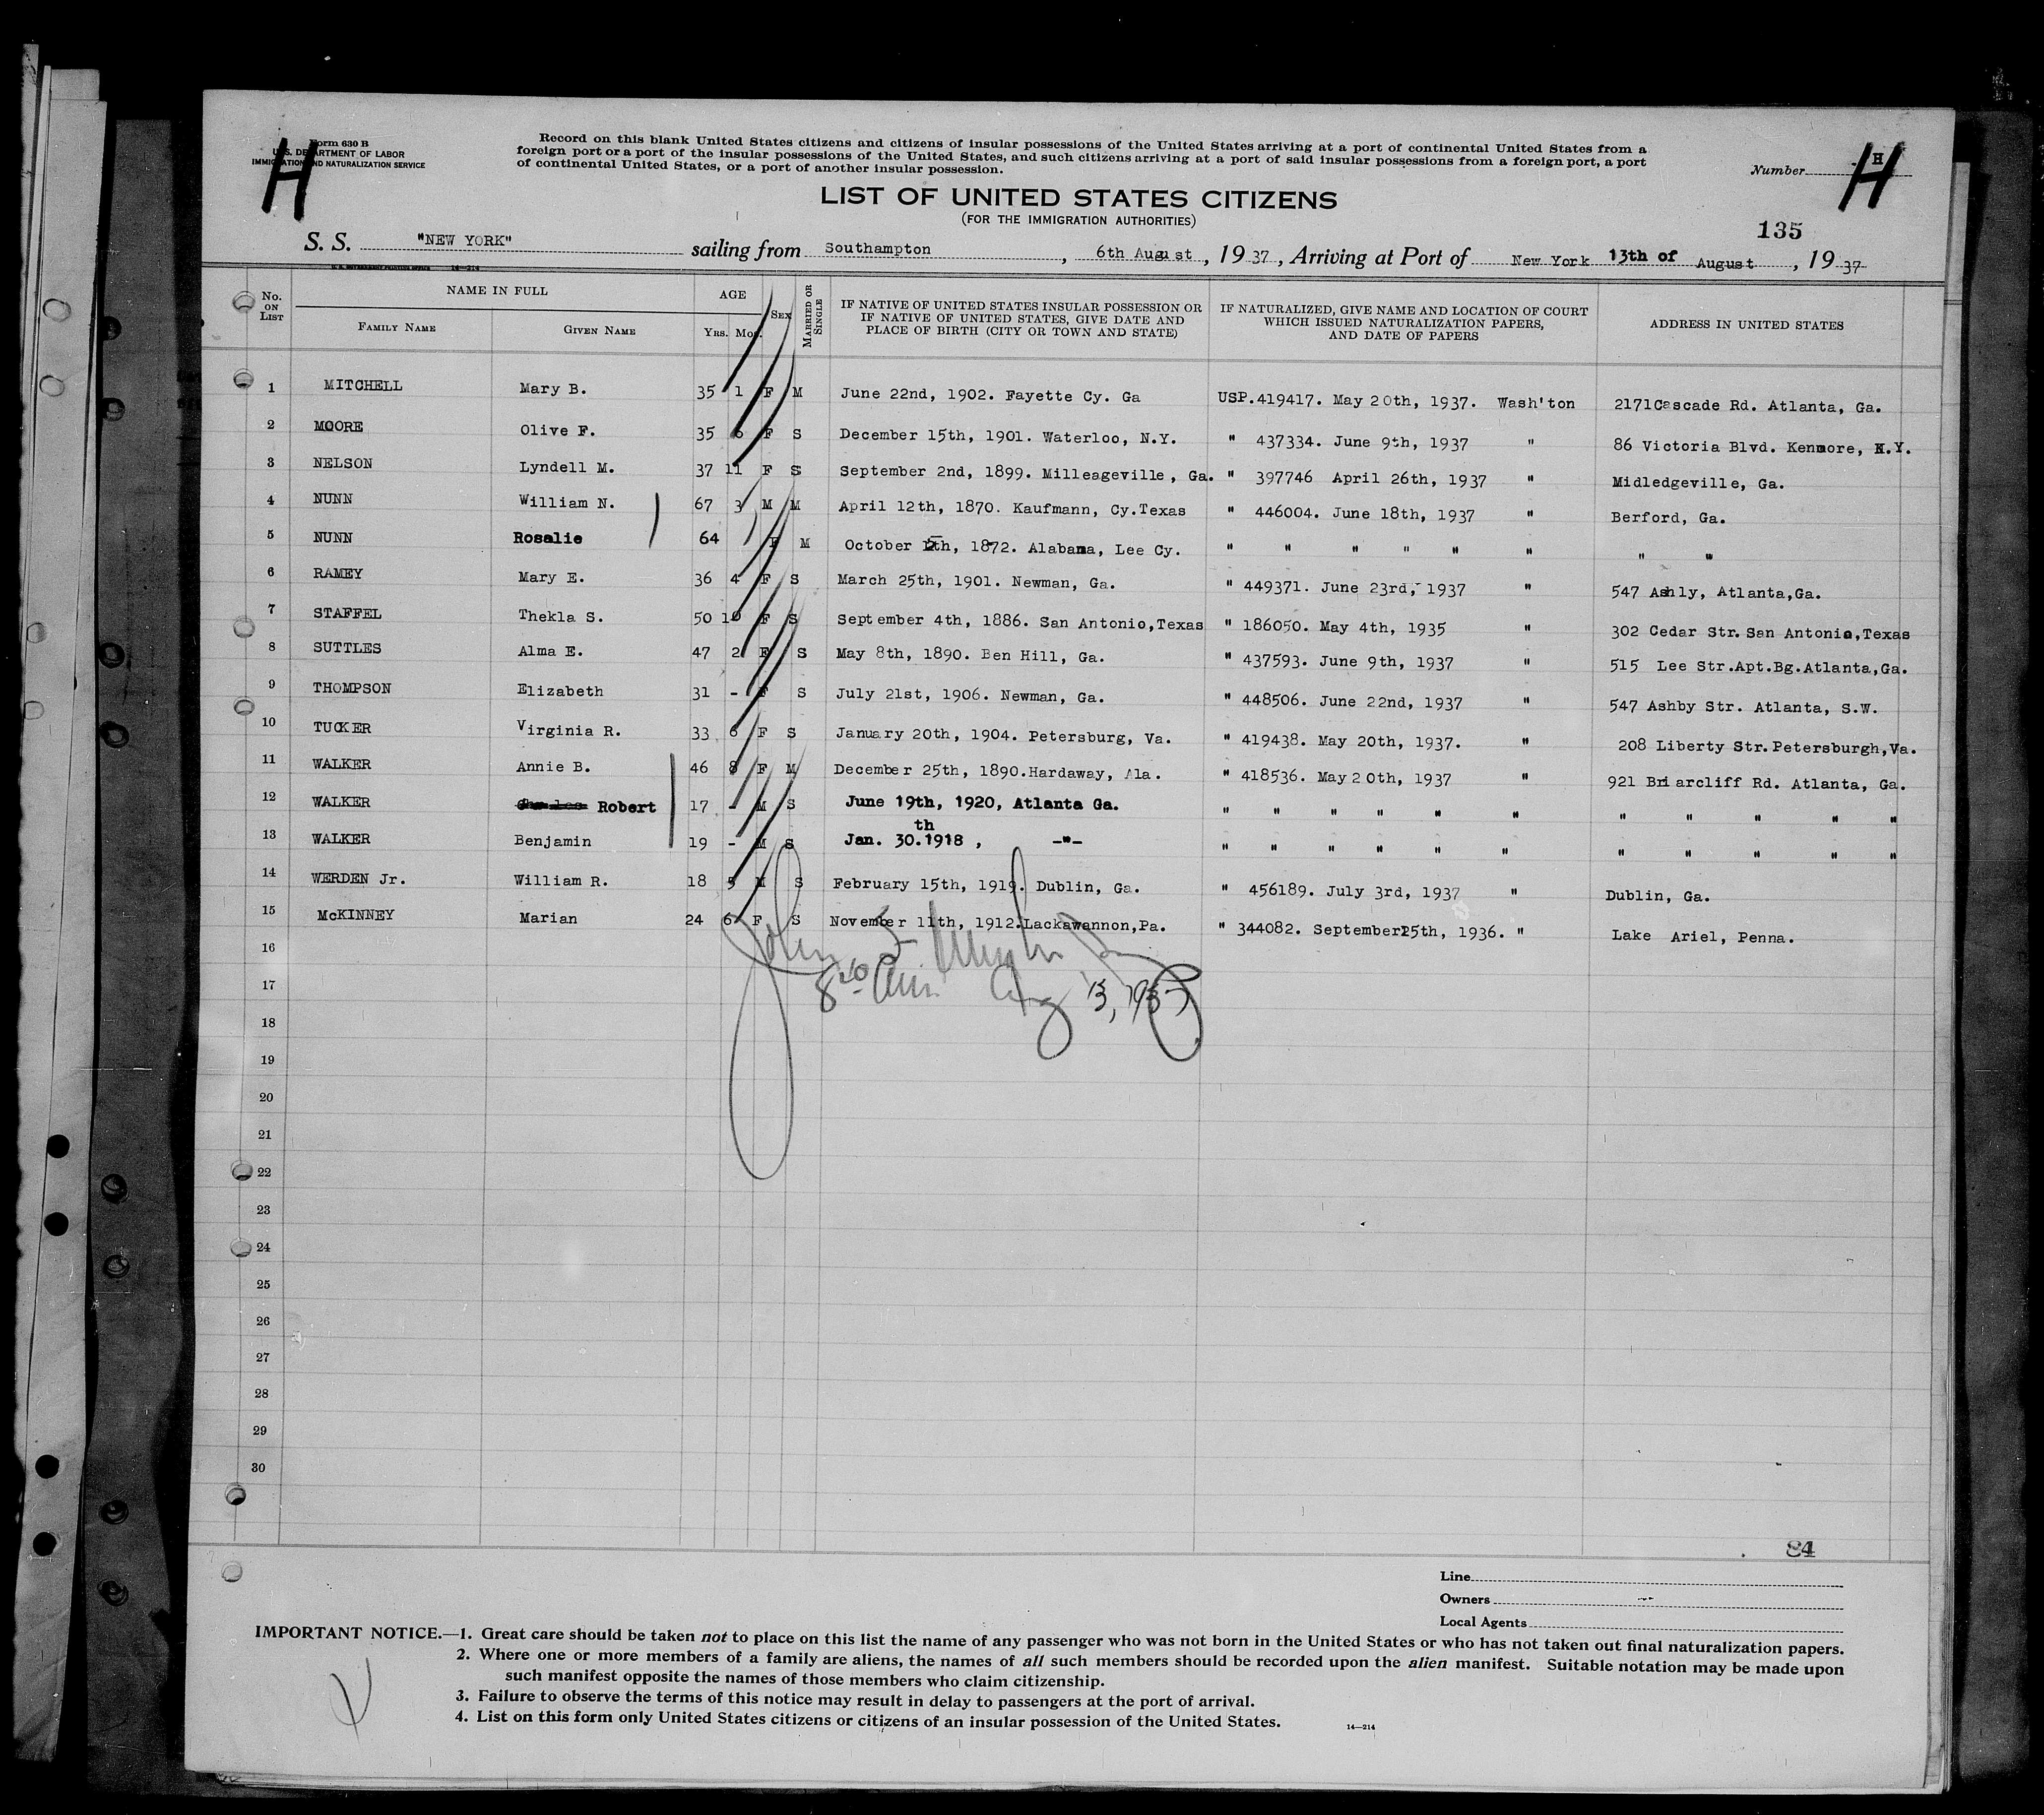 H
Form 630 B
U.S. DEPARTMENT OF LABOR
IMMIGRATION AND NATURALIZATION SERVICE
Record on this blank United States citizens and citizens of insular possessions of the United States arriving at a port of continental United States from a
foreign port or a port of the insular possessions of the United States, and such citizens arriving at a port of said insular possessions from a foreign port, a port
of continental United States, or a port of another insular possession.
Number H
H
LIST OF UNITED STATES CITIZENS
(FOR THE IMMIGRATION AUTHORITIES)
135
S. S. "NEW YORK" sailing from Southampton, 6th August, 1937, Arriving at Port of New York 13th of August, 1937
14—214
No. ON LIST NAME IN FULL AGE SEX MARRIED OR SINGLE IF NATIVE OF UNITED STATES INSULAR POSSESSION OR IF NATIVE OF UNITED STATES, GIVE DATE AND PLACE OF BIRTH (CITY OR TOWN AND STATE) IF NATURALIZED, GIVE NAME AND LOCATION OF COURT WHICH ISSUED NATURALIZATION PAPERS, AND DATE OF PAPERS ADDRESS IN UNITED STATES
FAMILY NAME GIVEN NAME YRS. MOS.
1 MITCHELL Mary B. 35 1 F M June 22nd, 1902. Fayette Cy. Ga USP.419417. May 20th, 1937. Wash'ton 2171Cascade Rd. Atlanta, Ga.
2 MOORE Olive F. 35 6 F S December 15th, 1901. Waterloo, N.Y. " 437334. June 9th, 1937 " 86 Victoria Blvd. Kenmore, N.Y.
3 NELSON Lyndell M. 37 11 F S September 2nd, 1899. Milleageville, Ga. " 397746 April 26th, 1937 " Midledgeville, Ga.
4 NUNN William N. 67 3 M M April 12th, 1870. Kaufmann, Cy.Texas " 446004. June 18th, 1937 " Berford, Ga.
5 NUNN Rosalie 64 F M October th, 1872. Alabama, Lee Cy. " " " " " " " "
6 RAMEY Mary E. 36 4 F S March 25th, 1901. Newman, Ga. " 449371. June 23rd, 1937 " 547 Ashly, Atlanta,Ga.
7 STAFFEL Thekla S. 50 10 F S September 4th, 1886. San Antonio,Texas " 186050. May 4th, 1935 " 302 Cedar Str. San Antonio,Texas
8 SUTTLES Alma E. 47 2 F S May 8th, 1890. Ben Hill, Ga. " 437593. June 9th, 1937 " 515 Lee Str.Apt.Bg.Atlanta,Ga.
9 THOMPSON Elizabeth 31 - F S July 21st, 1906. Newman, Ga. " 448506. June 22nd, 1937 " 547 Ashby Str. Atlanta, S.W.
10 TUCKER Virginia R. 33 6 F S January 20th, 1904. Petersburg, Va. " 419438. May 20th, 1937. " 208 Liberty Str.Petersburgh,Va.
11 WALKER Annie B. 46 8 F M December 25th, 1890.Hardaway, Ala. " 418536. May 20th, 1937 " 921 Briarcliff Rd. Atlanta, Ga.
12 WALKER Robert 17 - M S June 19th, 1920, Atlanta Ga. " " " " " " " " " " "
13 WALKER Benjamin 19 - M S Jan. 30.th 1918 , -"- " " " " " " " " " " "
14 WERDEN Jr. William R. 18 5 M S February 15th, 1919. Dublin, Ga. " 456189. July 3rd, 1937 " Dublin, Ga.
15 McKINNEY Marian 24 6 F S November 11th, 1912.Lackawannon,Pa. " 344082. September 25th, 1936. " Lake Ariel, Penna.
16
17 Aug 13, 1937
18
19
20
21
22
23
24
25
26
27
28
29
30
84
Line
Owners
Local Agents
IMPORTANT NOTICE.—1. Great care should be taken not to place on this list the name of any passenger who was not born in the United States or who has not taken out final naturalization papers.
2. Where one or more members of a family are aliens, the names of all such members should be recorded upon the alien manifest. Suitable notation may be made upon
such manifest opposite the names of those members who claim citizenship.
3. Failure to observe the terms of this notice may result in delay to passengers at the port of arrival.
4. List on this form only United States citizens or citizens of an insular possession of the United States.
14—214